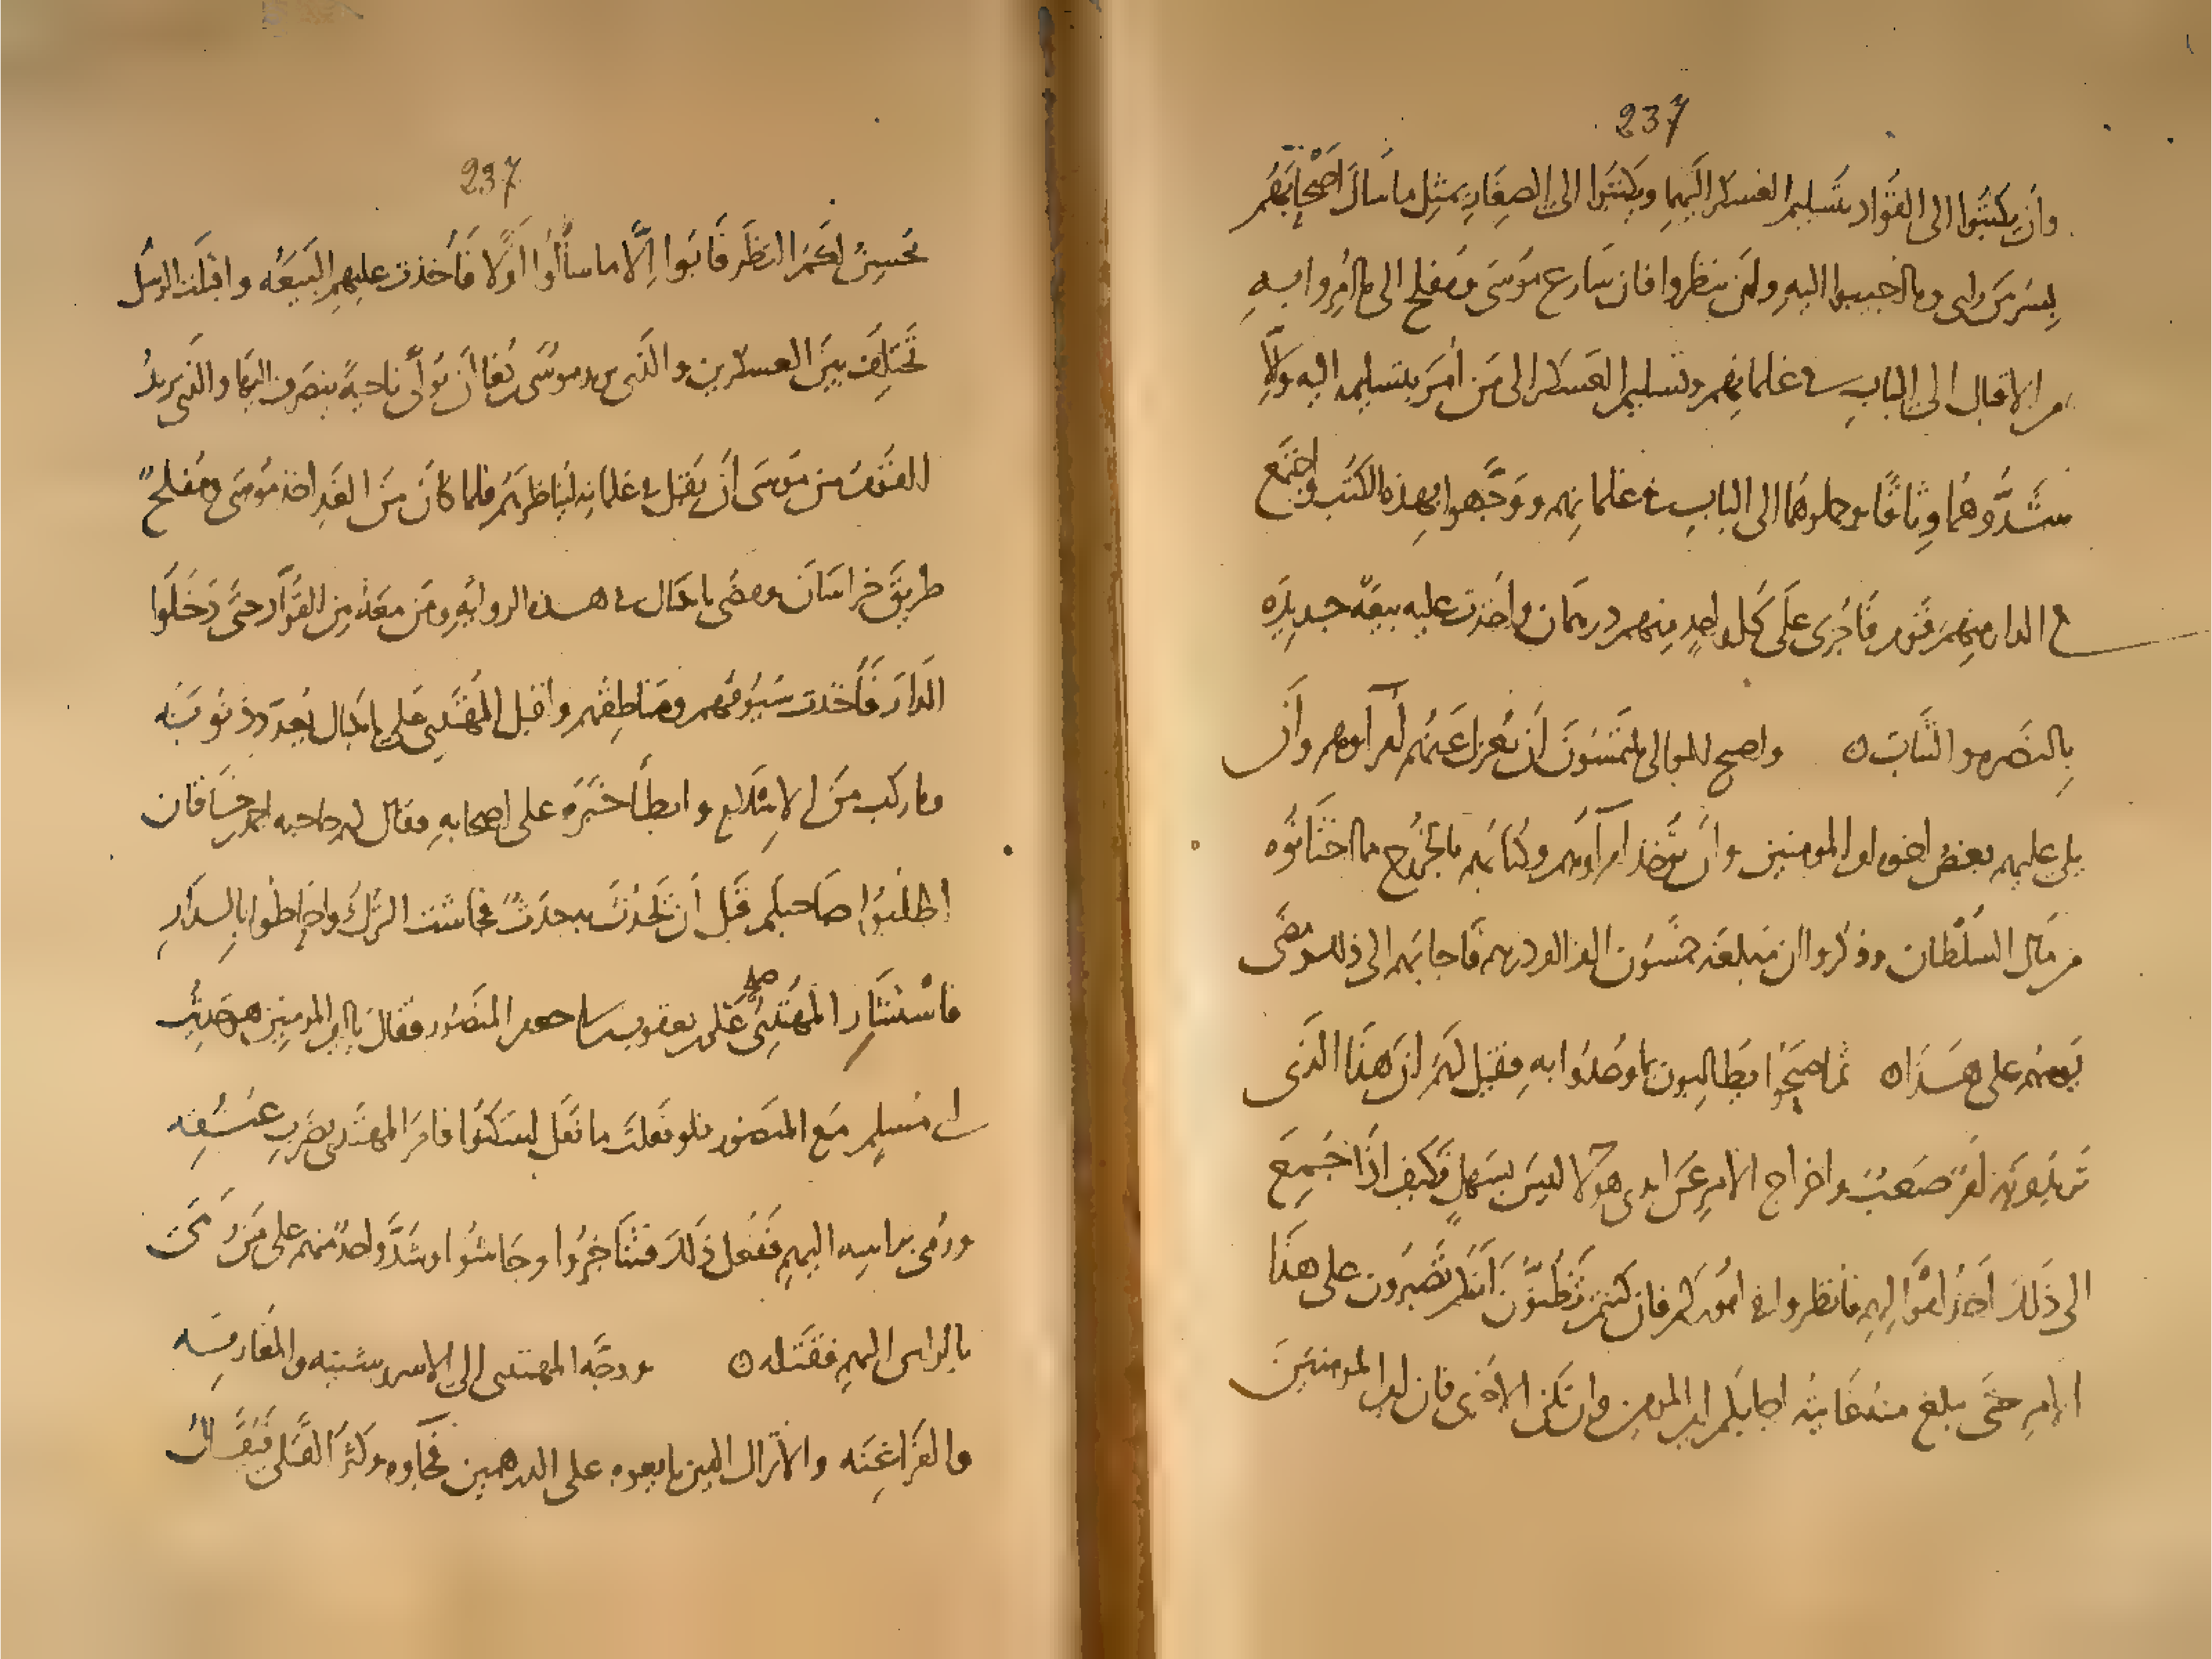 237
وان يكتبوا الى القواد بتسليم العسكر اليهما ويكتبوا الى الصغار بمثل ما سال اصحابهم
بسر من راى وما اجيبوا اليه ولمن ينظروا فان سارع موسى ومفلح الى ما امروا به
من الاقبال الى الباب في غلمانهم وتسليم العسكر الى من امر بتسليمه اليه والا
شدوهما وثاقا وحملوهما الى الباب في غلمانهم ووجهوا بهذه الكتب واجتمع
في الدار منهم قوم فاجرى على كل واحد منهم درهمان واخذت عليه بيعة جديدة
بالنصرة والثبات ه واصبح الموالي يلتمسون ان تعزل عنهم امراوهم وان
يلي عليهم بعض اخوة امير المومنين وان يوخذ امراوهم وكتابهم بالخروج مما اختانوه
من مال السلطان وذكروا ان مبلغه خمسون الف الف درهم فاجابهم الى ذلك ومضى
يومهم على هذا ه ثم اصبحوا يطالبون بما وعدوا به فقيل لهم ان هذا الذي
تريدونه امر صعب واخراج الامر عن ايدي هولا ليس بسهل فكيف اذا جمع
الى ذلك اخذ اموالهم فانظروا في اموركم فان كنتم تظنون انكم تصبرون على هذا
الامر حتى يبلغ منه غايته اجابكم امير المومنين وان تكن الاخرى فان امير المومنين
237
يحسن لكم النظر فابوا الا ما سألوا اولا فأخذت عليهم البيعه واقبلت الرسل
تختلف بين العسكرين والذي يريد موسى بن بغا ان يولى ناحية ينصرف اليها والذي يريد
القوم من موسى أن يقبل في غلمانه ليناظرهم فلما كان من الغد اخذ موسى ومفلح
طريق خراسان ومضى بايكباك في هذه الروايه ومن معه من القواد حتى دخلوا
الدار فأخذت سيوفهم ومناطقهم واقبل المهتدي على بايكباك يعدد ذنوبه
وما ركب من الاسلام وابطأ خبره على اصحابه فقال لهم صاحبه احمد بن خاقان
اطلبوا صاحبكم قبل ان يحدث به حدث فجاشت الترك واحاطوا بالدار
فاستشار المهتدي صالح بن علي بن يعقوب بن ابي جعفر المنصور فقال يا امير المومنين هو حديث
ابي مسلم مع المنصور فلو فعلت ما فعل لسكنوا فامر المهتدي بضرب عنقه
ورمي براسه اليهم ففعل ذلك فتناخروا وجاشوا وشد واحد منهم على من رمى
بالراس اليهم فقتله ه ووجه المهتدي الى الاسروشنيه والمغاربه
والفراغنه والاتراك الذين بايعوه على الدرهمين فجاوه وكثر القتلى فيقال